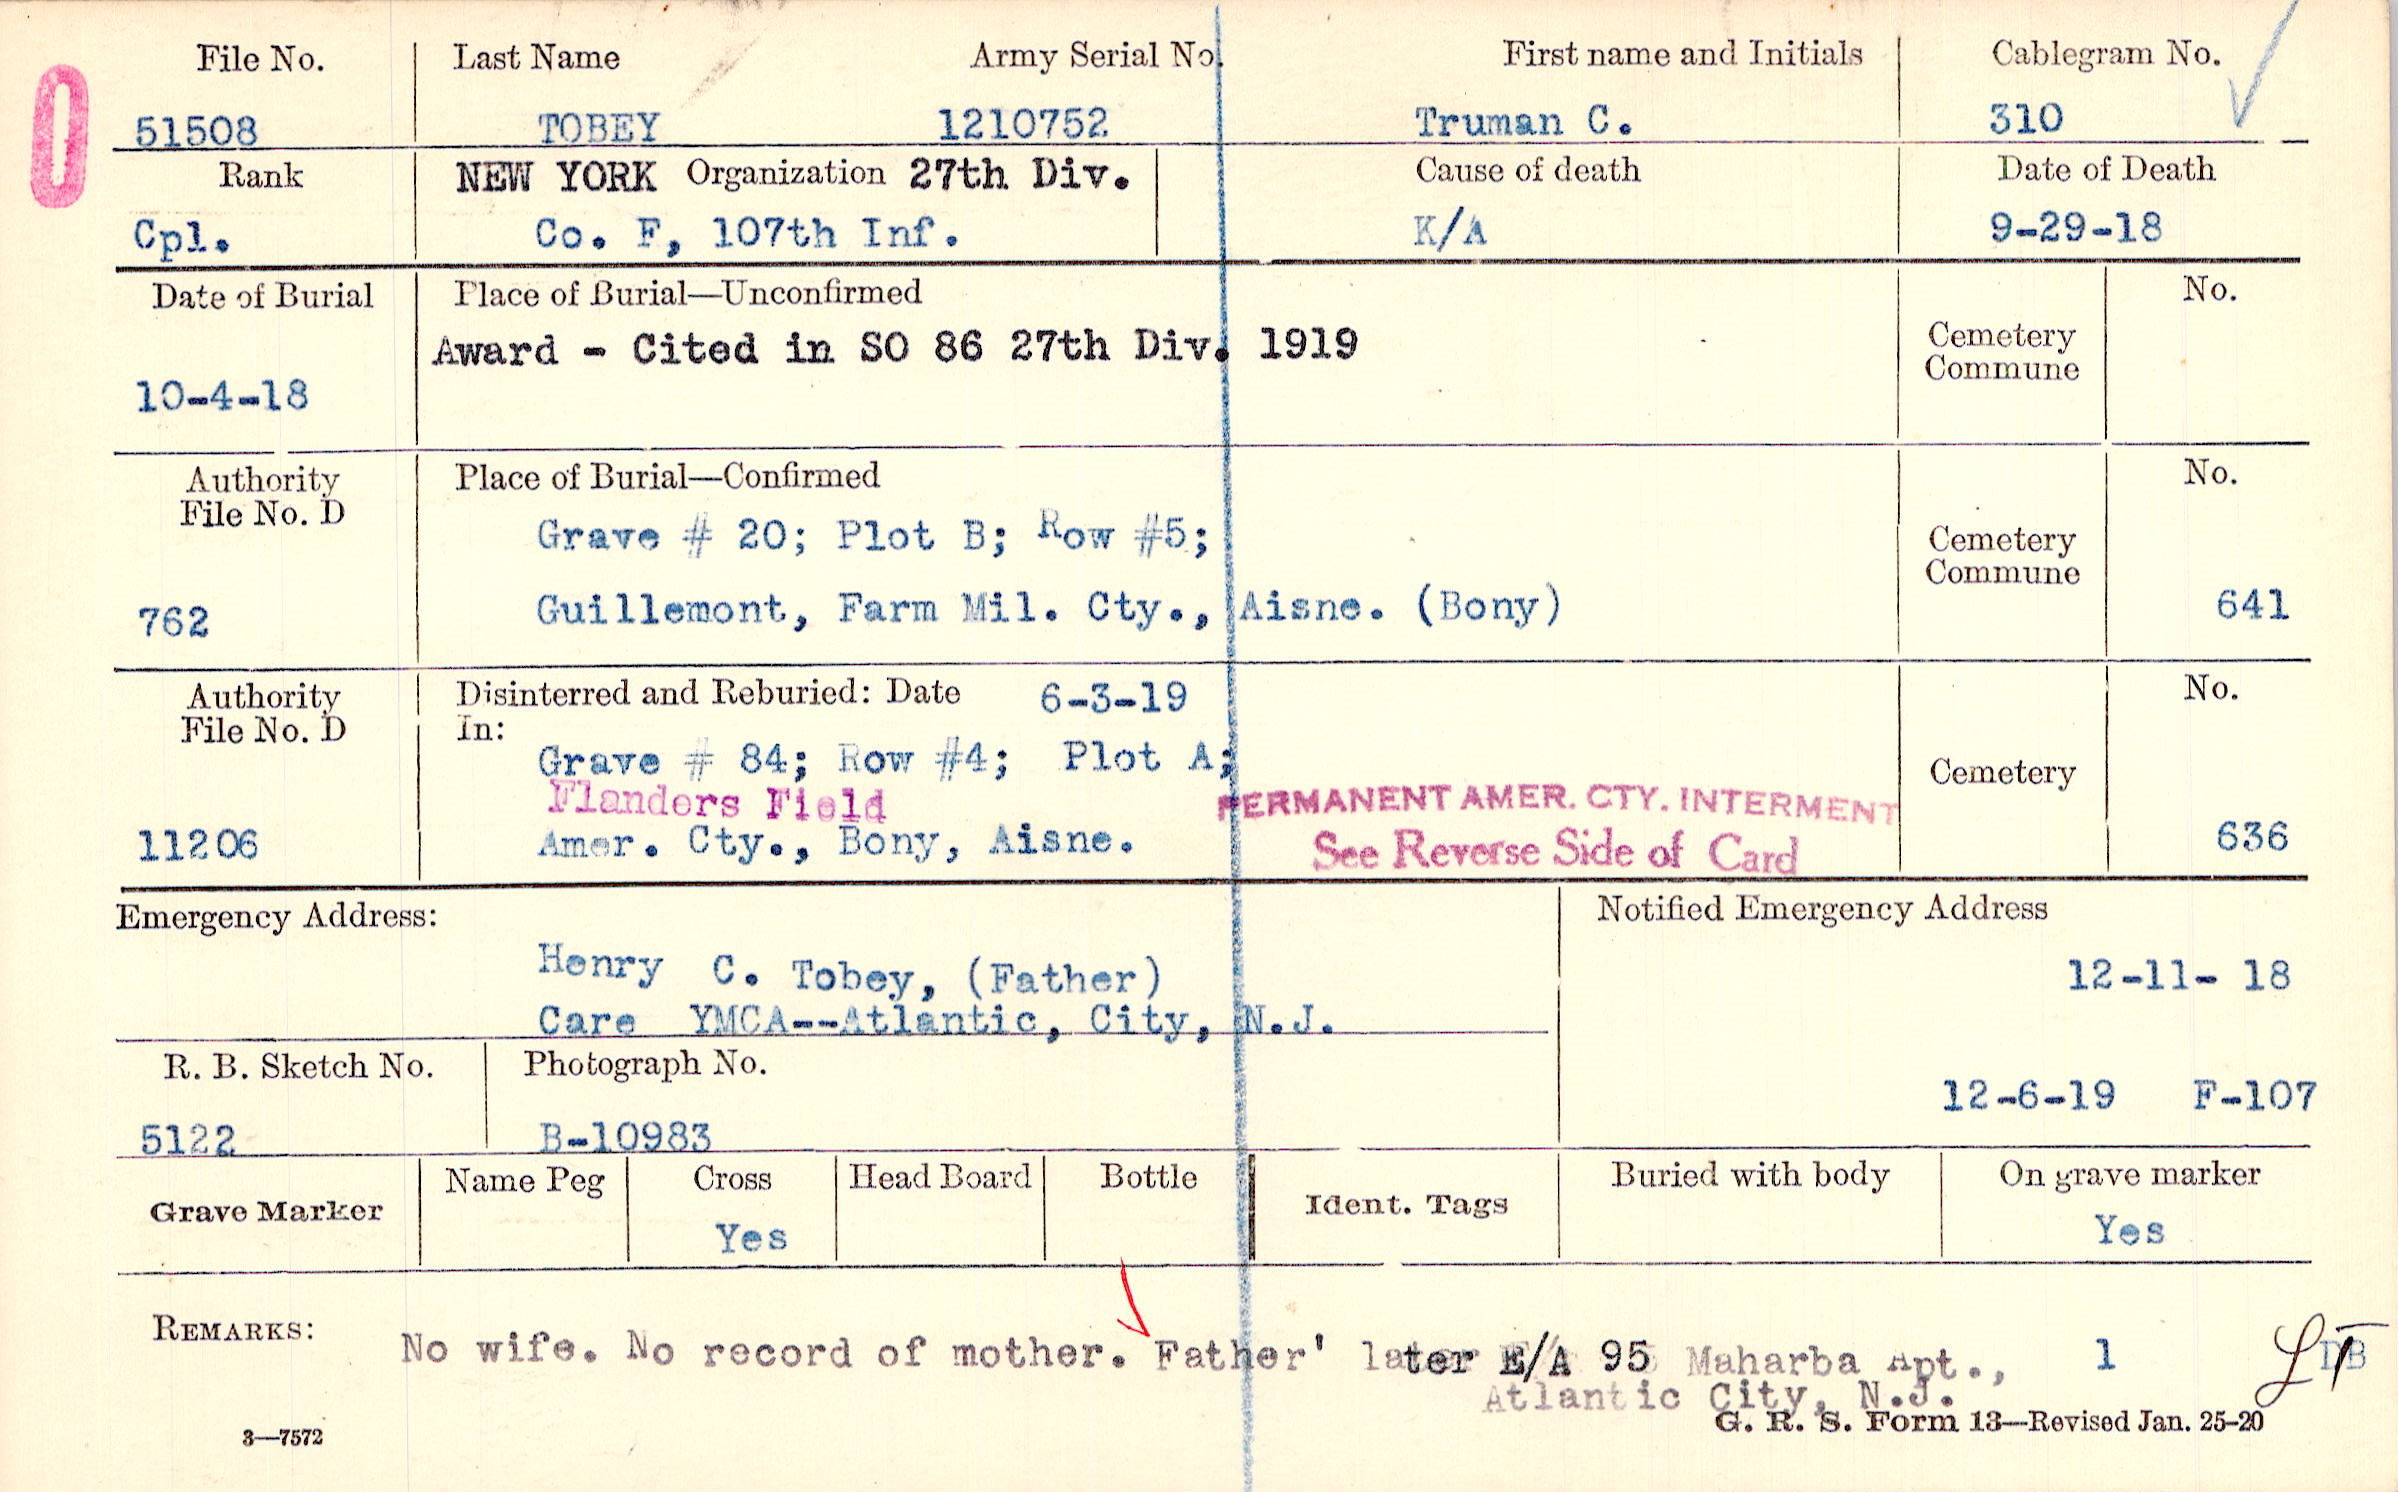 File No. Last Name Army Serial No. First name and Initials Cablegram No.
51508 TOBEY 1210752 Truman C. 310
Rank NEW YORK Organization 27th Div. Cause of death Date of Death
Cpl. Co. F, 107th Inf. K/A 9-29-18
Date of Burial Place of Burial—Unconfirmed No.
Award - Cited in SO 86 27th Div. 1919 Cemetery
Commune
10-4-18
Authority Place of Burial—Confirmed No.
File No. D
Grave # 20; Plot B; Row #5; Cemetery
Commune
762 Guillemont, Farm Mil. Cty., Aisne. (Bony) 641
Authority Disinterred and Reburied: Date 6-3-19 No.
File No. D In:
Grave # 84; Row #4; Plot A; Cemetery
Flanders Field PERMANENT AMER. CTY. INTERMENT
11206 Amer. Cty., Bony, Aisne. See Reverse Side of Card 636
Emergency Address: Notified Emergency Address
Henry C. Tobey, (Father) 12-11- 18
Care YMCA--Atlantic, City, N.J.
R. B. Sketch No. Photograph No.
12-6-19 F-107
5122 B-10983
Grave Marker Name Peg Cross Head Board Bottle Ident. Tags Buried with body On grave marker
Yes Yes
REMARKS: No wife. No record of mother. Father' later E/A 95 Maharba Apt., 1 DB
Atlantic City, N.J.
3—7572 G. R. S. Form 13—Revised Jan. 25-20